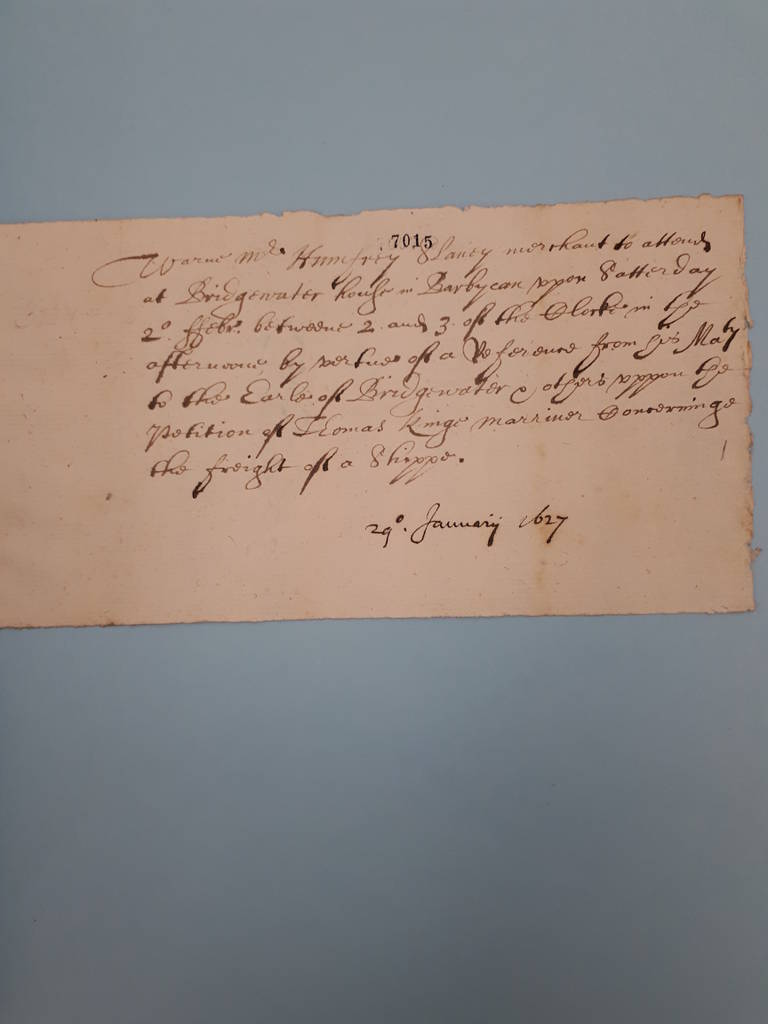 7015
Warne Mr Humfrey Slaney merchant to attend
at Bridgewater house in Barbycan vpon Satterday
2o ffebr. betweene 2 and 3 of the Clocke in the
afternoone by vertue of a Reference from his Maty
to the Earle of Bridgewater & others vppon the
Petition of Thomas Kinge marriner Concerninge
the freight of a Shippe.
29o. January 1627